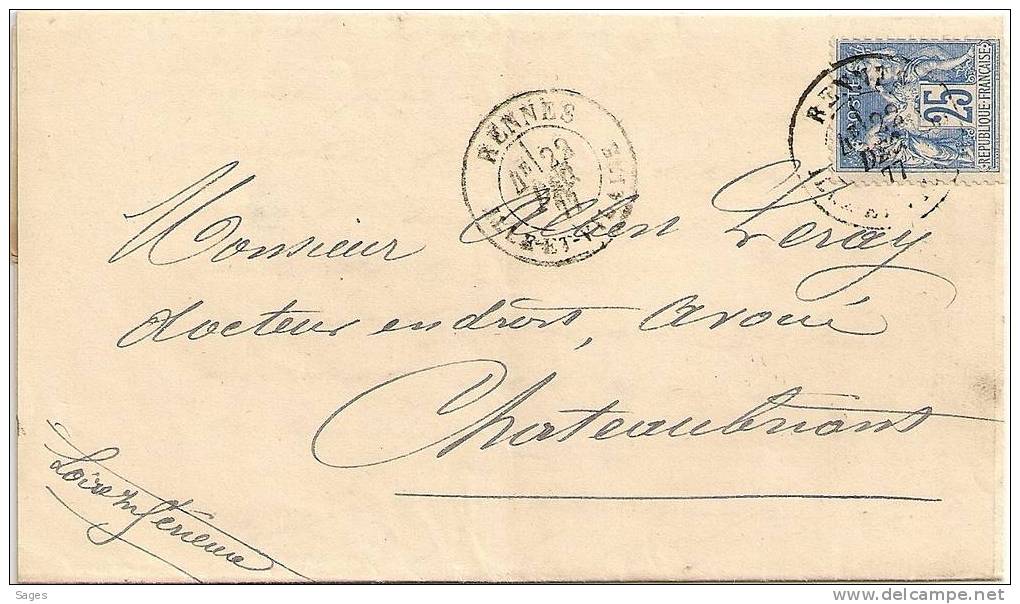 POSTES
25
REPUBLIQUE FRANCAISE
RENNES
4E 22
DEC
77
ILLE-ET-VILAINE
RENNES
4E 22
DEC
77
Monsieur Leray
docteur en droit, avoué
Chateaubriant
Loire Inférieure
Sages
www.delcampe.net